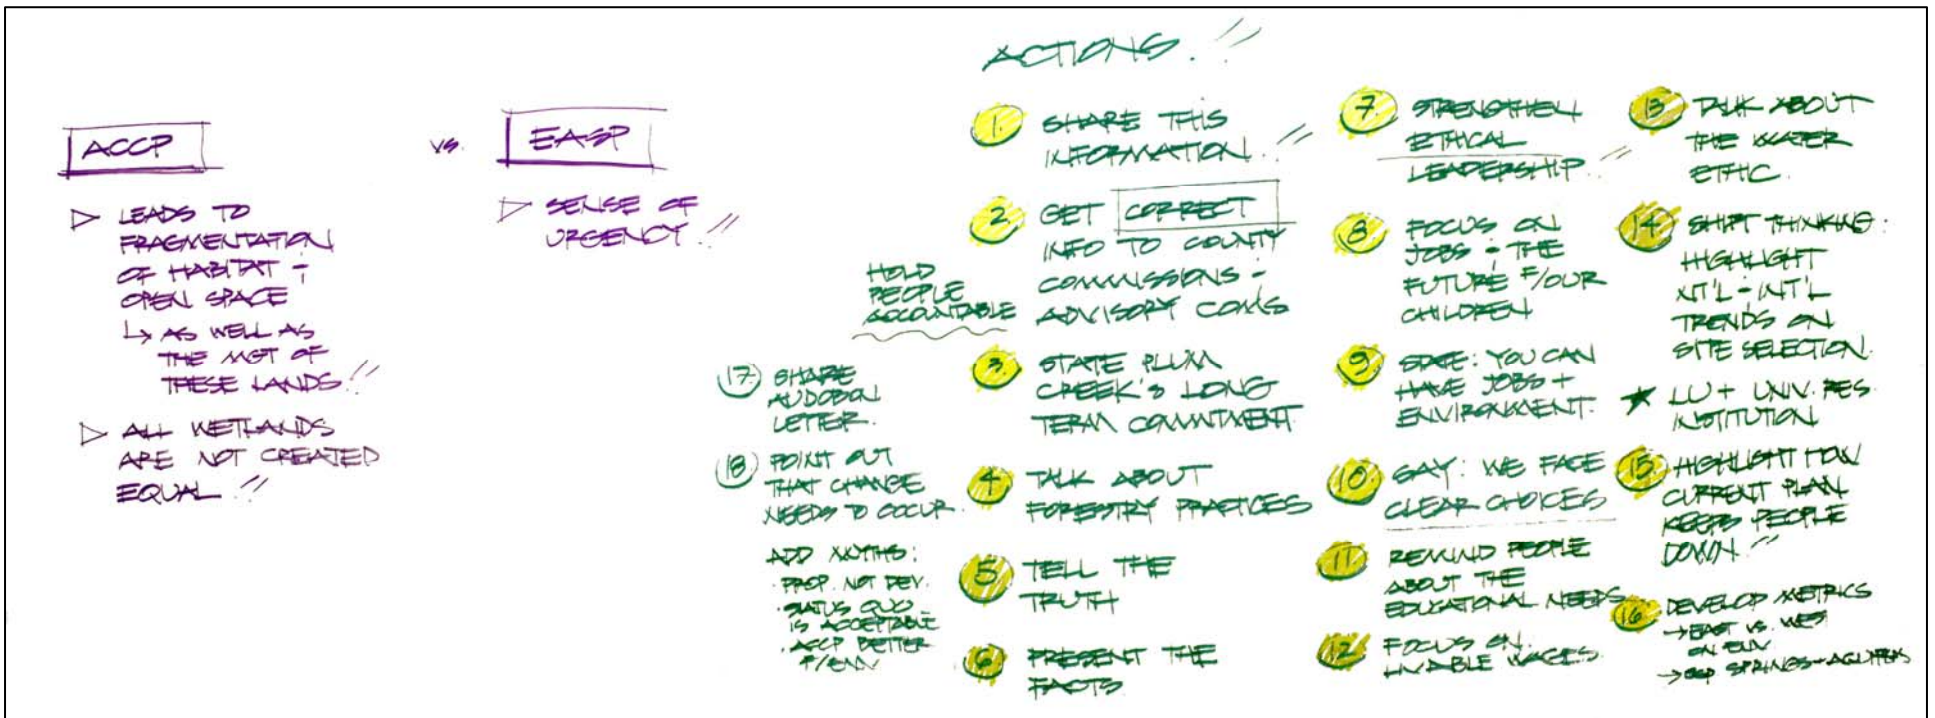 ACCP
▷ LEADS TO
FRAGMENTATION
OF HABITAT +
OPEN SPACE
↳ AS WELL AS
THE MGT OF
THESE LANDS!!
▷ ALL WETLANDS
ARE NOT CREATED
EQUAL!!
VS.
EASP
▷ SENSE OF
URGENCY!!
ACTIONS!!
1. SHARE THIS
INFORMATION!!
2 GET CORRECT
INFO TO COUNTY
COMMISSIONS +
ADVISORY COM'S
HOLD
PEOPLE
ACCOUNTABLE
3. STATE PLUM
CREEK'S LONG
TERM COMMITMENT
4 TALK ABOUT
FORESTRY PRACTICES
5 TELL THE
TRUTH
6 PRESENT THE
FACTS
17. SHARE
AUDOBON
LETTER.
18 POINT OUT
THAT CHANGE
NEEDS TO OCCUR.
ADD MYTHS:
· PROP. NOT DEV.
· STATUS QUO
IS ACCEPTABLE
· ACCP BETTER
F/ENV
7 STRENGTHEN
ETHICAL
LEADERSHIP!!
8 FOCUS ON
JOBS + THE
FUTURE F/OUR
CHILDREN
9 STATE: YOU CAN
HAVE JOBS +
ENVIRONMENT.
10 SAY: WE FACE
CLEAR CHOICES
11 REMIND PEOPLE
ABOUT THE
EDUCATIONAL NEEDS
12 FOCUS ON
LIVABLE WAGES
13 TALK ABOUT
THE WATER
ETHIC.
14 SHIFT THINKING:
HIGHLIGHT
NT'L + INT'L
TRENDS ON
SITE SELECTION.
★ LU + UNIV. RES.
INSTITUTION
15 HIGHLIGHT HOW
CURRENT PLAN
KEEPS PEOPLE
DOWN!!
16 DEVELOP METRICS
→ EAST VS. WEST
ON ENV
→ SPRINGS + AQUIFERS